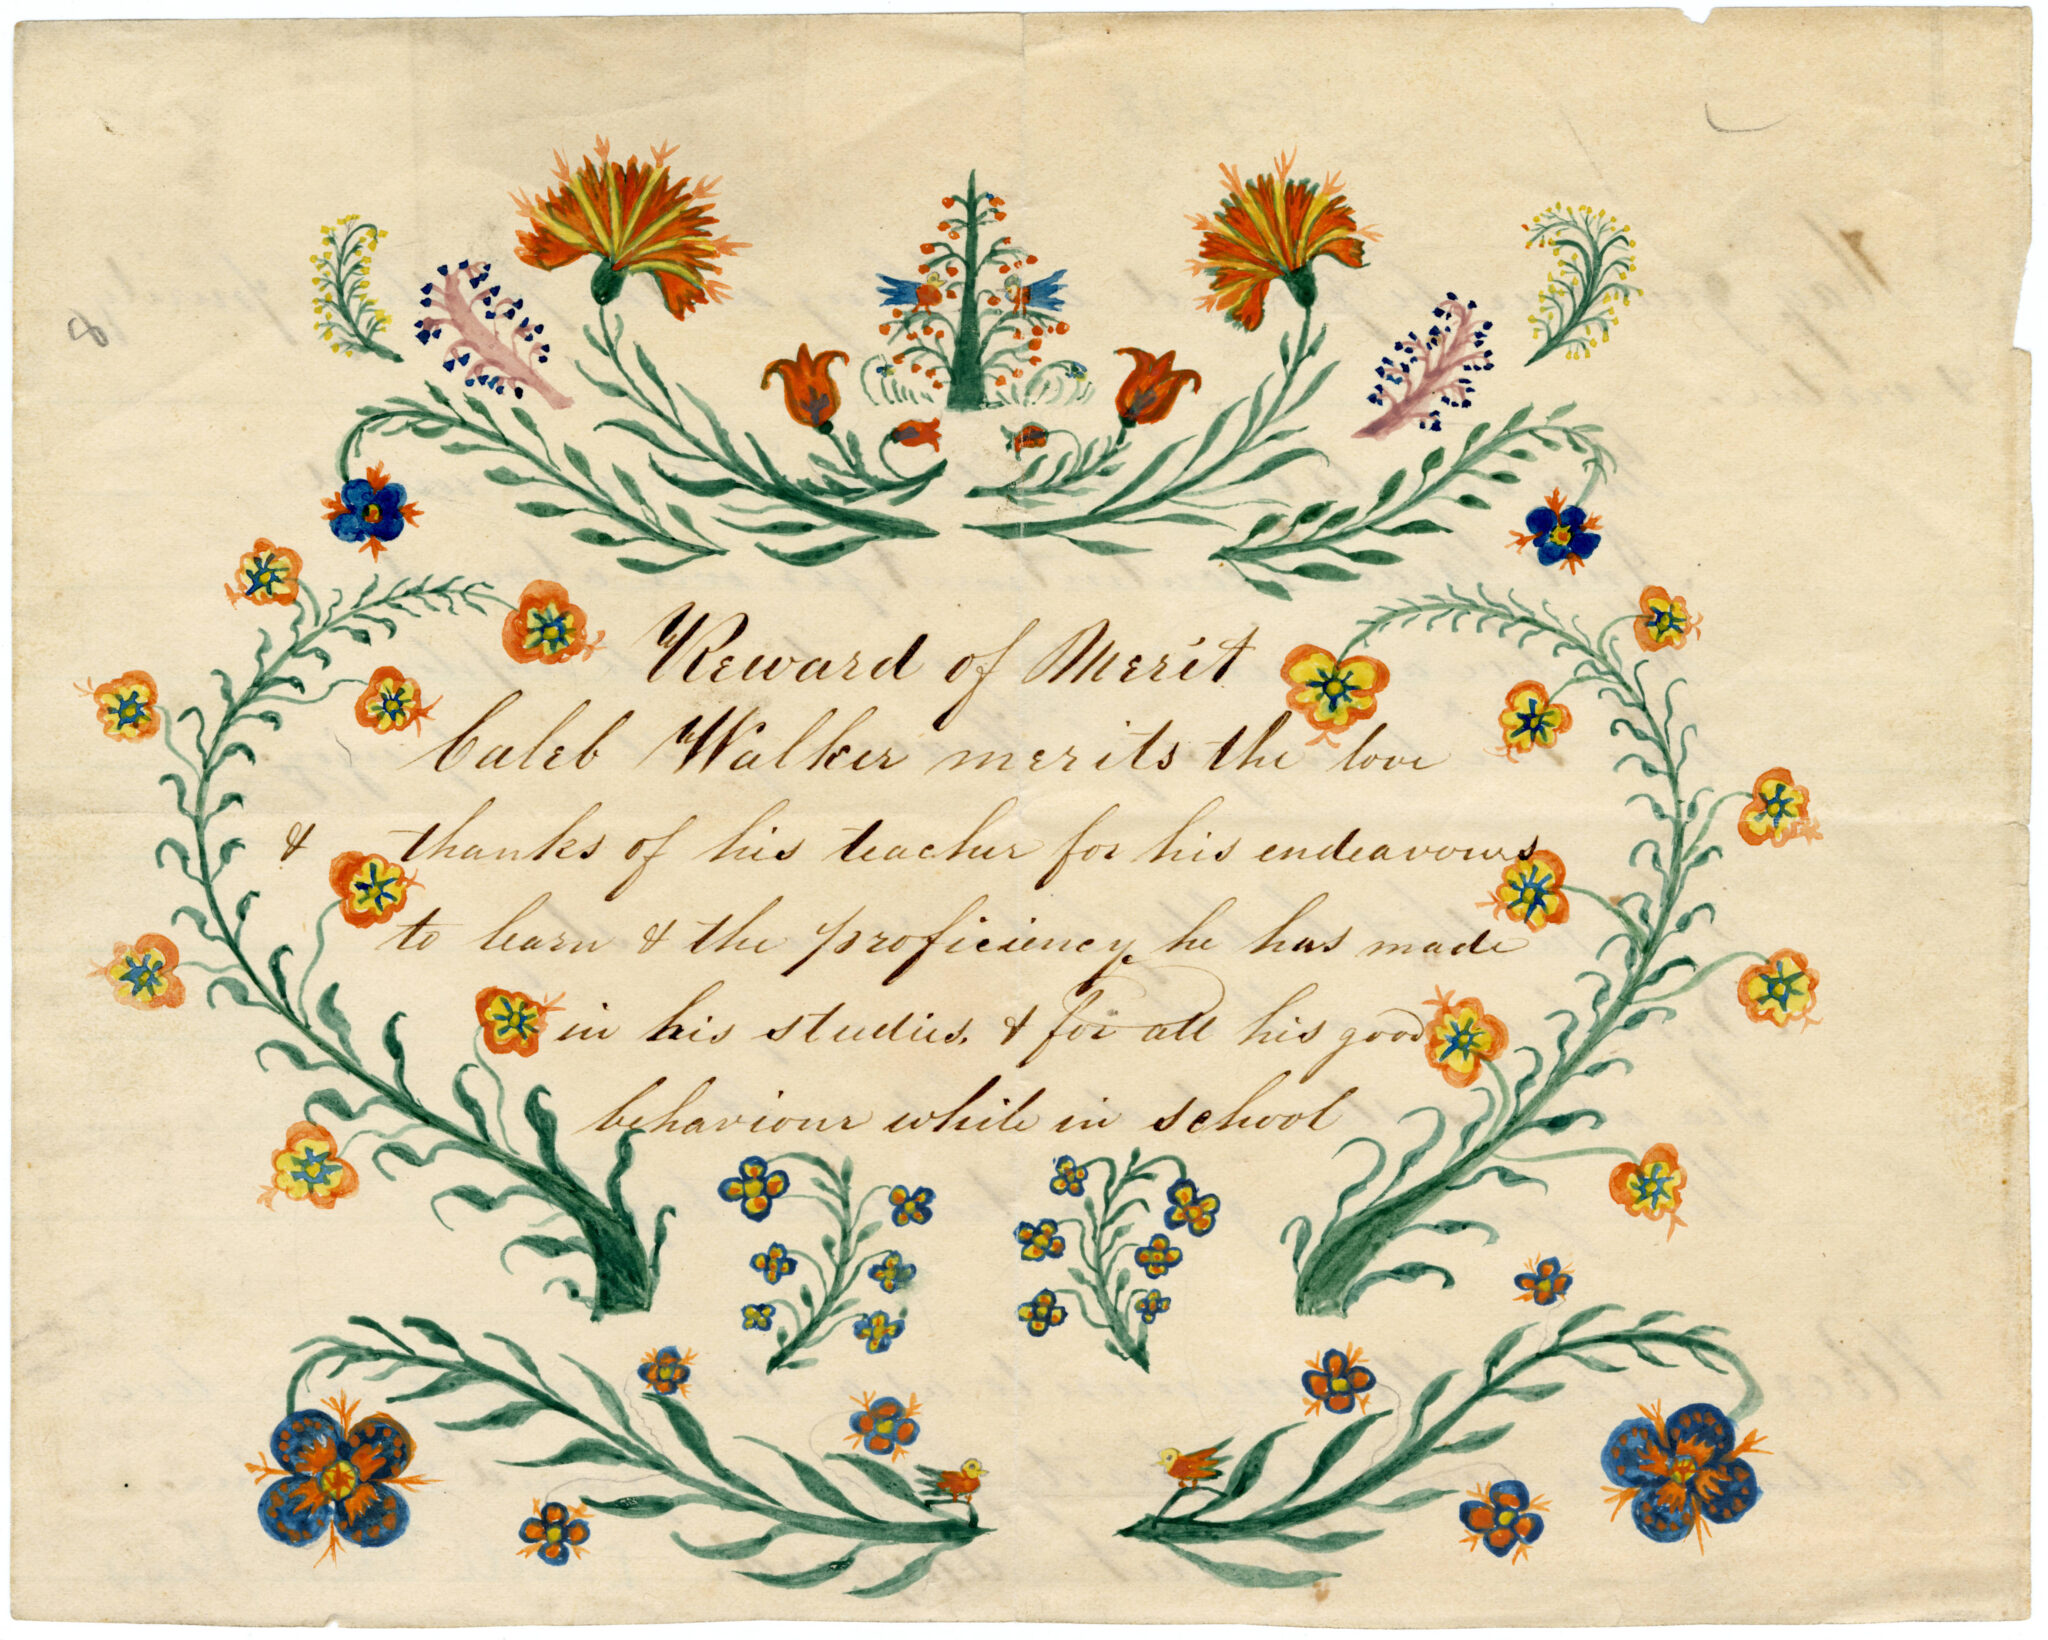 Reward of Merit
Caleb Walker merits the love
& thanks of his teacher for his endeavours
to learn & the proficiency he has made
in his studies. & for all his good
behaviour while in school
8